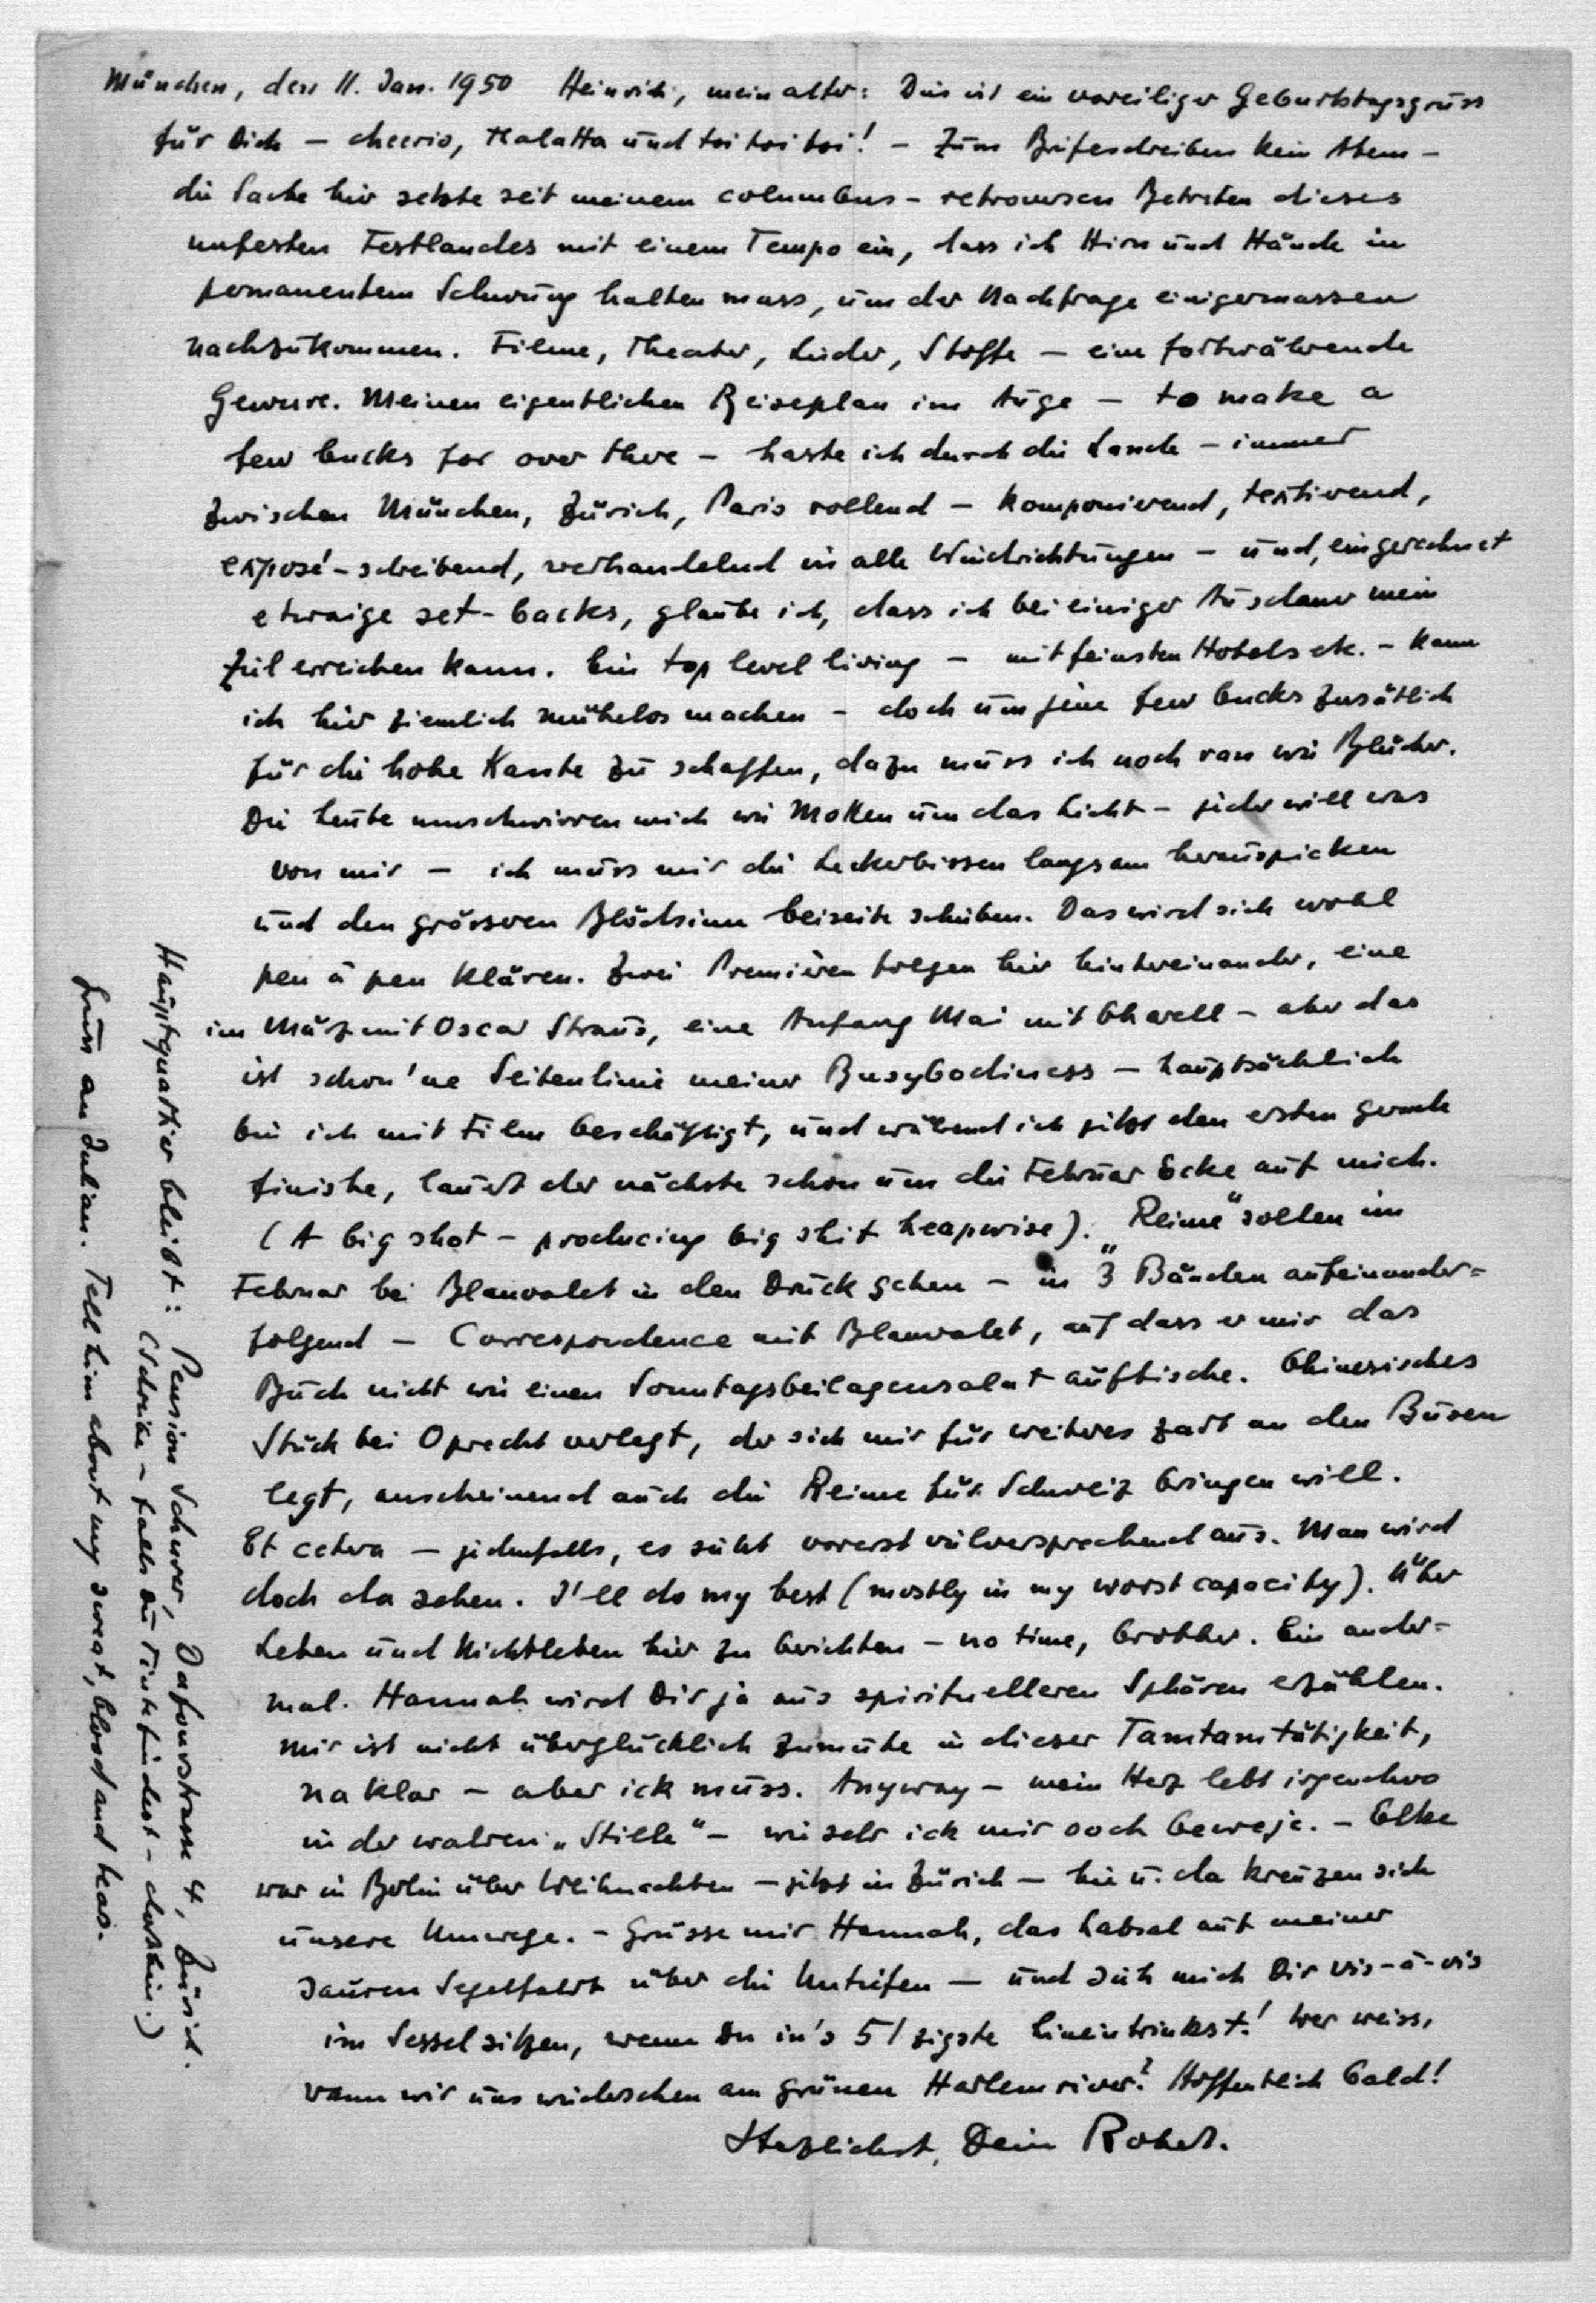 München, den 11. Jan. 1950 Heinrich, mein alter: Dies ist ein voreiliger Geburtstagsgruss
für Dich – cheerio, Thalatta und toi toi toi! – Zum Briefeschreiben kein Atem –
die Sache hier setzte seit meinem columbus-retroversen Betreten dieses
unfesten Festlandes mit einem Tempo ein, dass ich Hirn und Hände in
permanentem Schwung halten muss, um der Nachfrage einigermassen
nachzukommen. Filme, Theater, Lieder, Stoffe – eine fortwährende
Gewerre. Meinen eigentlichen Reiseplan im Auge – to make a
few bucks for over there – haste ich durch die Lande – immer
zwischen München, Zürich, Paris rollend – komponierend, textierend,
exposé-schreibend, verhandelnd in alle Windrichtungen – und, eingerechnet
etwaige set-backs, glaube ich, dass ich bei einiger Ausdauer mein
Ziel erreichen kann. Ein top level living – mit feinsten Hotels etc. – kann
ich hier ziemlich mühelos machen – doch um jene few bucks zusätzlich
für die hohe Kante zu schaffen, dazu muss ich noch ran wie Blücher.
Die Leute umschwirren mich wie Motten um das Licht – jeder will was
von mir – ich muss mir die Leckerbissen langsam herauspicken
und den grösseren Blödsinn beiseite schieben. Das wird sich wohl
peu à peu klären. Zwei Premièren folgen hier hintereinander, eine
im März mit Oscar Straus, eine Anfang Mai mit Charell – aber das
ist schon 'ne Seitenlinie meiner Busybodiness – hauptsächlich
bin ich mit Film beschäftigt, und während ich jetzt den ersten gerade
finishe, lauert der nächste schon um die Februar Ecke auf mich.
(A big shot – producing big shit heapwise). „Reime" sollen im
Februar bei Blanvalet in den Druck gehen – in 3 Bänden aufeinander=
folgend – Correspondence mit Blanvalet, auf dass er mir das
Buch nicht wie einen Sonntagsbeilagensalat auftische. Chinesisches
Stück bei Oprecht verlegt, der sich mir für weiteres zart an den Busen
legt, anscheinend auch die Reime für Schweiz bringen will.
Et cetera – jedenfalls, es sieht vorerst vielversprechend aus. Man wird
doch da sehen. I'll do my best (mostly in my worst capacity). Über
Leben und Nichtleben hier zu berichten – no time, brother. Ein ander=
mal. Hannah wird Dir ja aus spirituelleren Sphären erzählen.
Mir ist nicht überglücklich zumute in dieser Tamtamtätigkeit,
na klar – aber ick muss. Anyway – mein Herz lebt irgendwo
in der wahren „Stille" – wie sehr ick mir ooch beweje. – Elke
war in Berlin über Weihnachten – jetzt in Zürich – hie u. da kreuzen sich
unsere Umwege. – Grüsse mir Hannah, das Labsal auf meiner
sauren Segelfahrt über die Untiefen – und sieh mich Dir vis-à-vis
im Sessel sitzen, wenn Du in's 51zigste hineintrinkst! Wer weiss,
wann wir uns wiedersehen am grünen Harlemriver? Hoffentlich bald!
Herzlichst, Dein Robert.
Hauptquartier bleibt: Pension Schurer, Dufourstrasse 4, Zürich.
(Schreibe – falls Du Tinte findest – dorthin.)
Gruss an Julian. Tell him about my sweat, blood and tears.